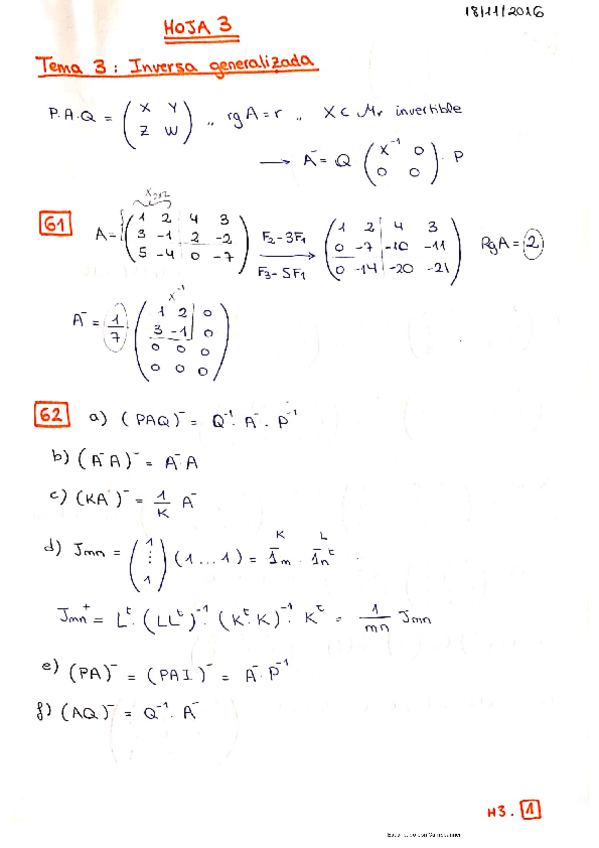 18/11/2016
HOJA 3
Tema 3: Inversa generalizada
P.A.Q = ( X Y ; Z W ) ,, rg A = r ,, X ⊂ Mr invertible
→ A⁻ = Q ( X⁻¹ 0 ; 0 0 ) · P
X2x2
61 A = ( 1 2 4 3 ; 3 -1 2 -2 ; 5 -4 0 -7 ) F2-3F1 F3-5F1 → ( 1 2 4 3 ; 0 -7 -10 -11 ; 0 -14 -20 -21 ) Rg A = 2
X⁻¹
A⁻ = 1/7 ( 1 2 0 ; 3 -1 0 ; 0 0 0 ; 0 0 0 )
62 a) (PAQ)⁻ = Q⁻¹ · A⁻ · P⁻¹
b) (A⁻A)⁻ = A⁻A
c) (KA)⁻ = 1/K A⁻
K L
d) Jmn = ( 1 ⋮ 1 ) (1 ... 1) = 1̄m · 1̄nᵗ
Jmn⁺ = Lᵗ · (LLᵗ)⁻¹ · (Kᵗ·K)⁻¹ · Kᵗ = 1/mn Jmn
e) (PA)⁻ = (PAI)⁻ = A⁻·P⁻¹
f) (AQ)⁻ = Q⁻¹ · A⁻
H3. 1